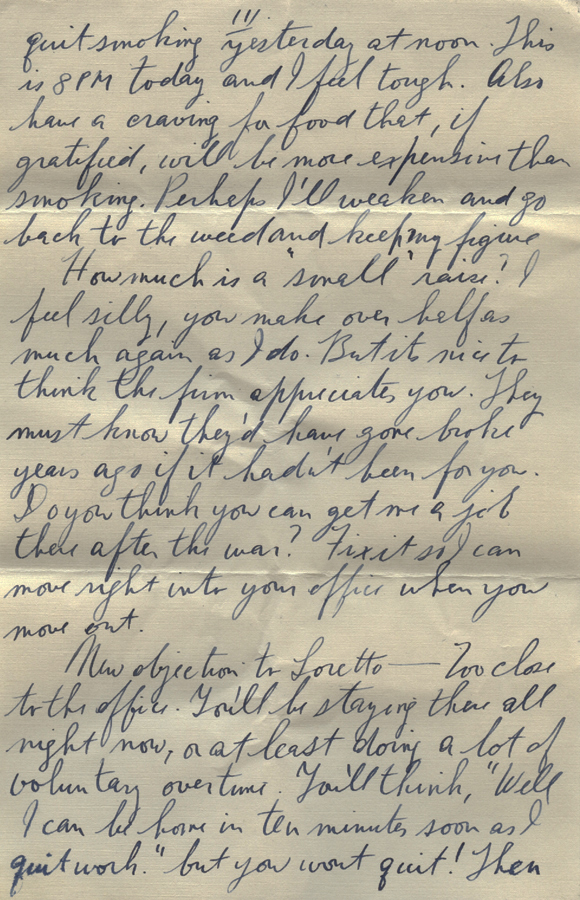 quit smoking yesterday at noon. This
!!!
is 8 PM today and I feel tough. Also
have a craving for food that, if
gratified, will be more expensive than
smoking. Perhaps I'll weaken and go
back to the weed and keep my figure
How much is a "small" raise? I
feel silly, you make over half as
much again as I do. But its nice to
think the firm appreciates you. They
must know they'd have gone broke
years ago if it hadn't been for you.
Do you think you can get me a job
there after the war? Fix it so I can
move right into your office when you
move out.
New objection to Loretto — Too close
to the office. You'll be staying there all
night now, or at least doing a lot of
voluntary overtime. You'll think, "Well
I can be home in ten minutes soon as I
quit work." but you wont quit! Then